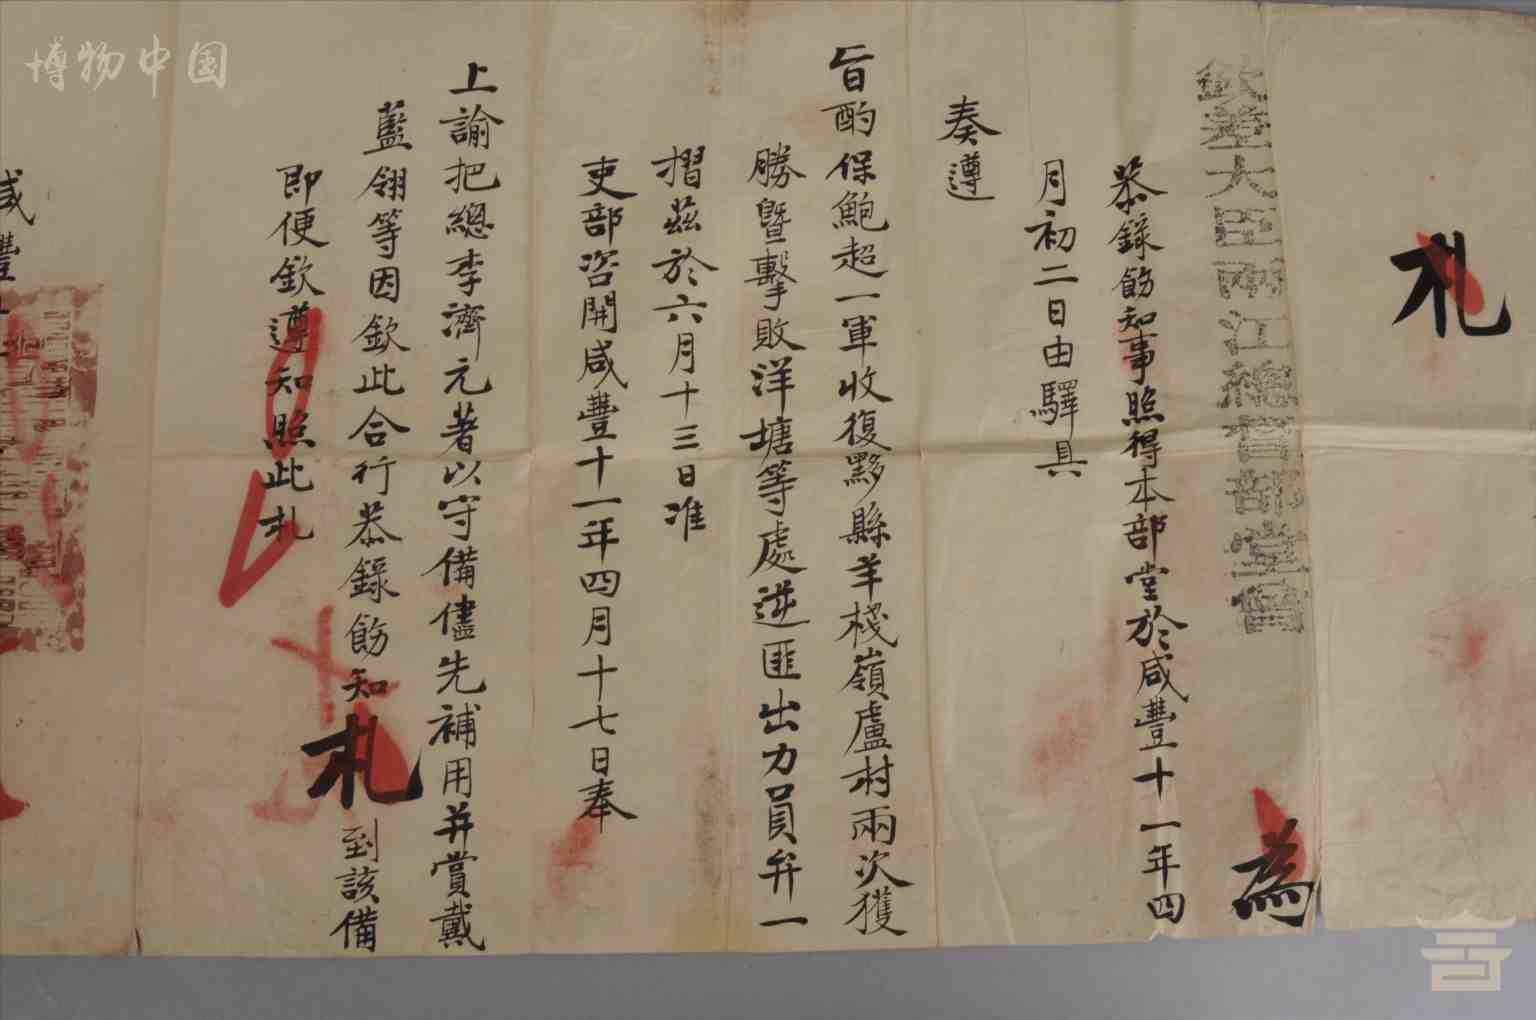 札
欽差大臣兩江總督部堂曾
為
恭錄飭知事照得本部堂於咸豐十一年四
月初二日由驛具
奏遵
旨酌保鮑超一軍收復黟縣羊棧嶺盧村兩次獲
勝暨擊敗洋塘等處逆匪出力員弁一
摺茲於六月十三日准
吏部咨開咸豐十一年四月十七日奉
上諭把總李濟元著以守備儘先補用并賞戴
藍翎等因欽此合行恭錄飭知札到該備
即便欽遵知照此札
咸豐十
博物中国